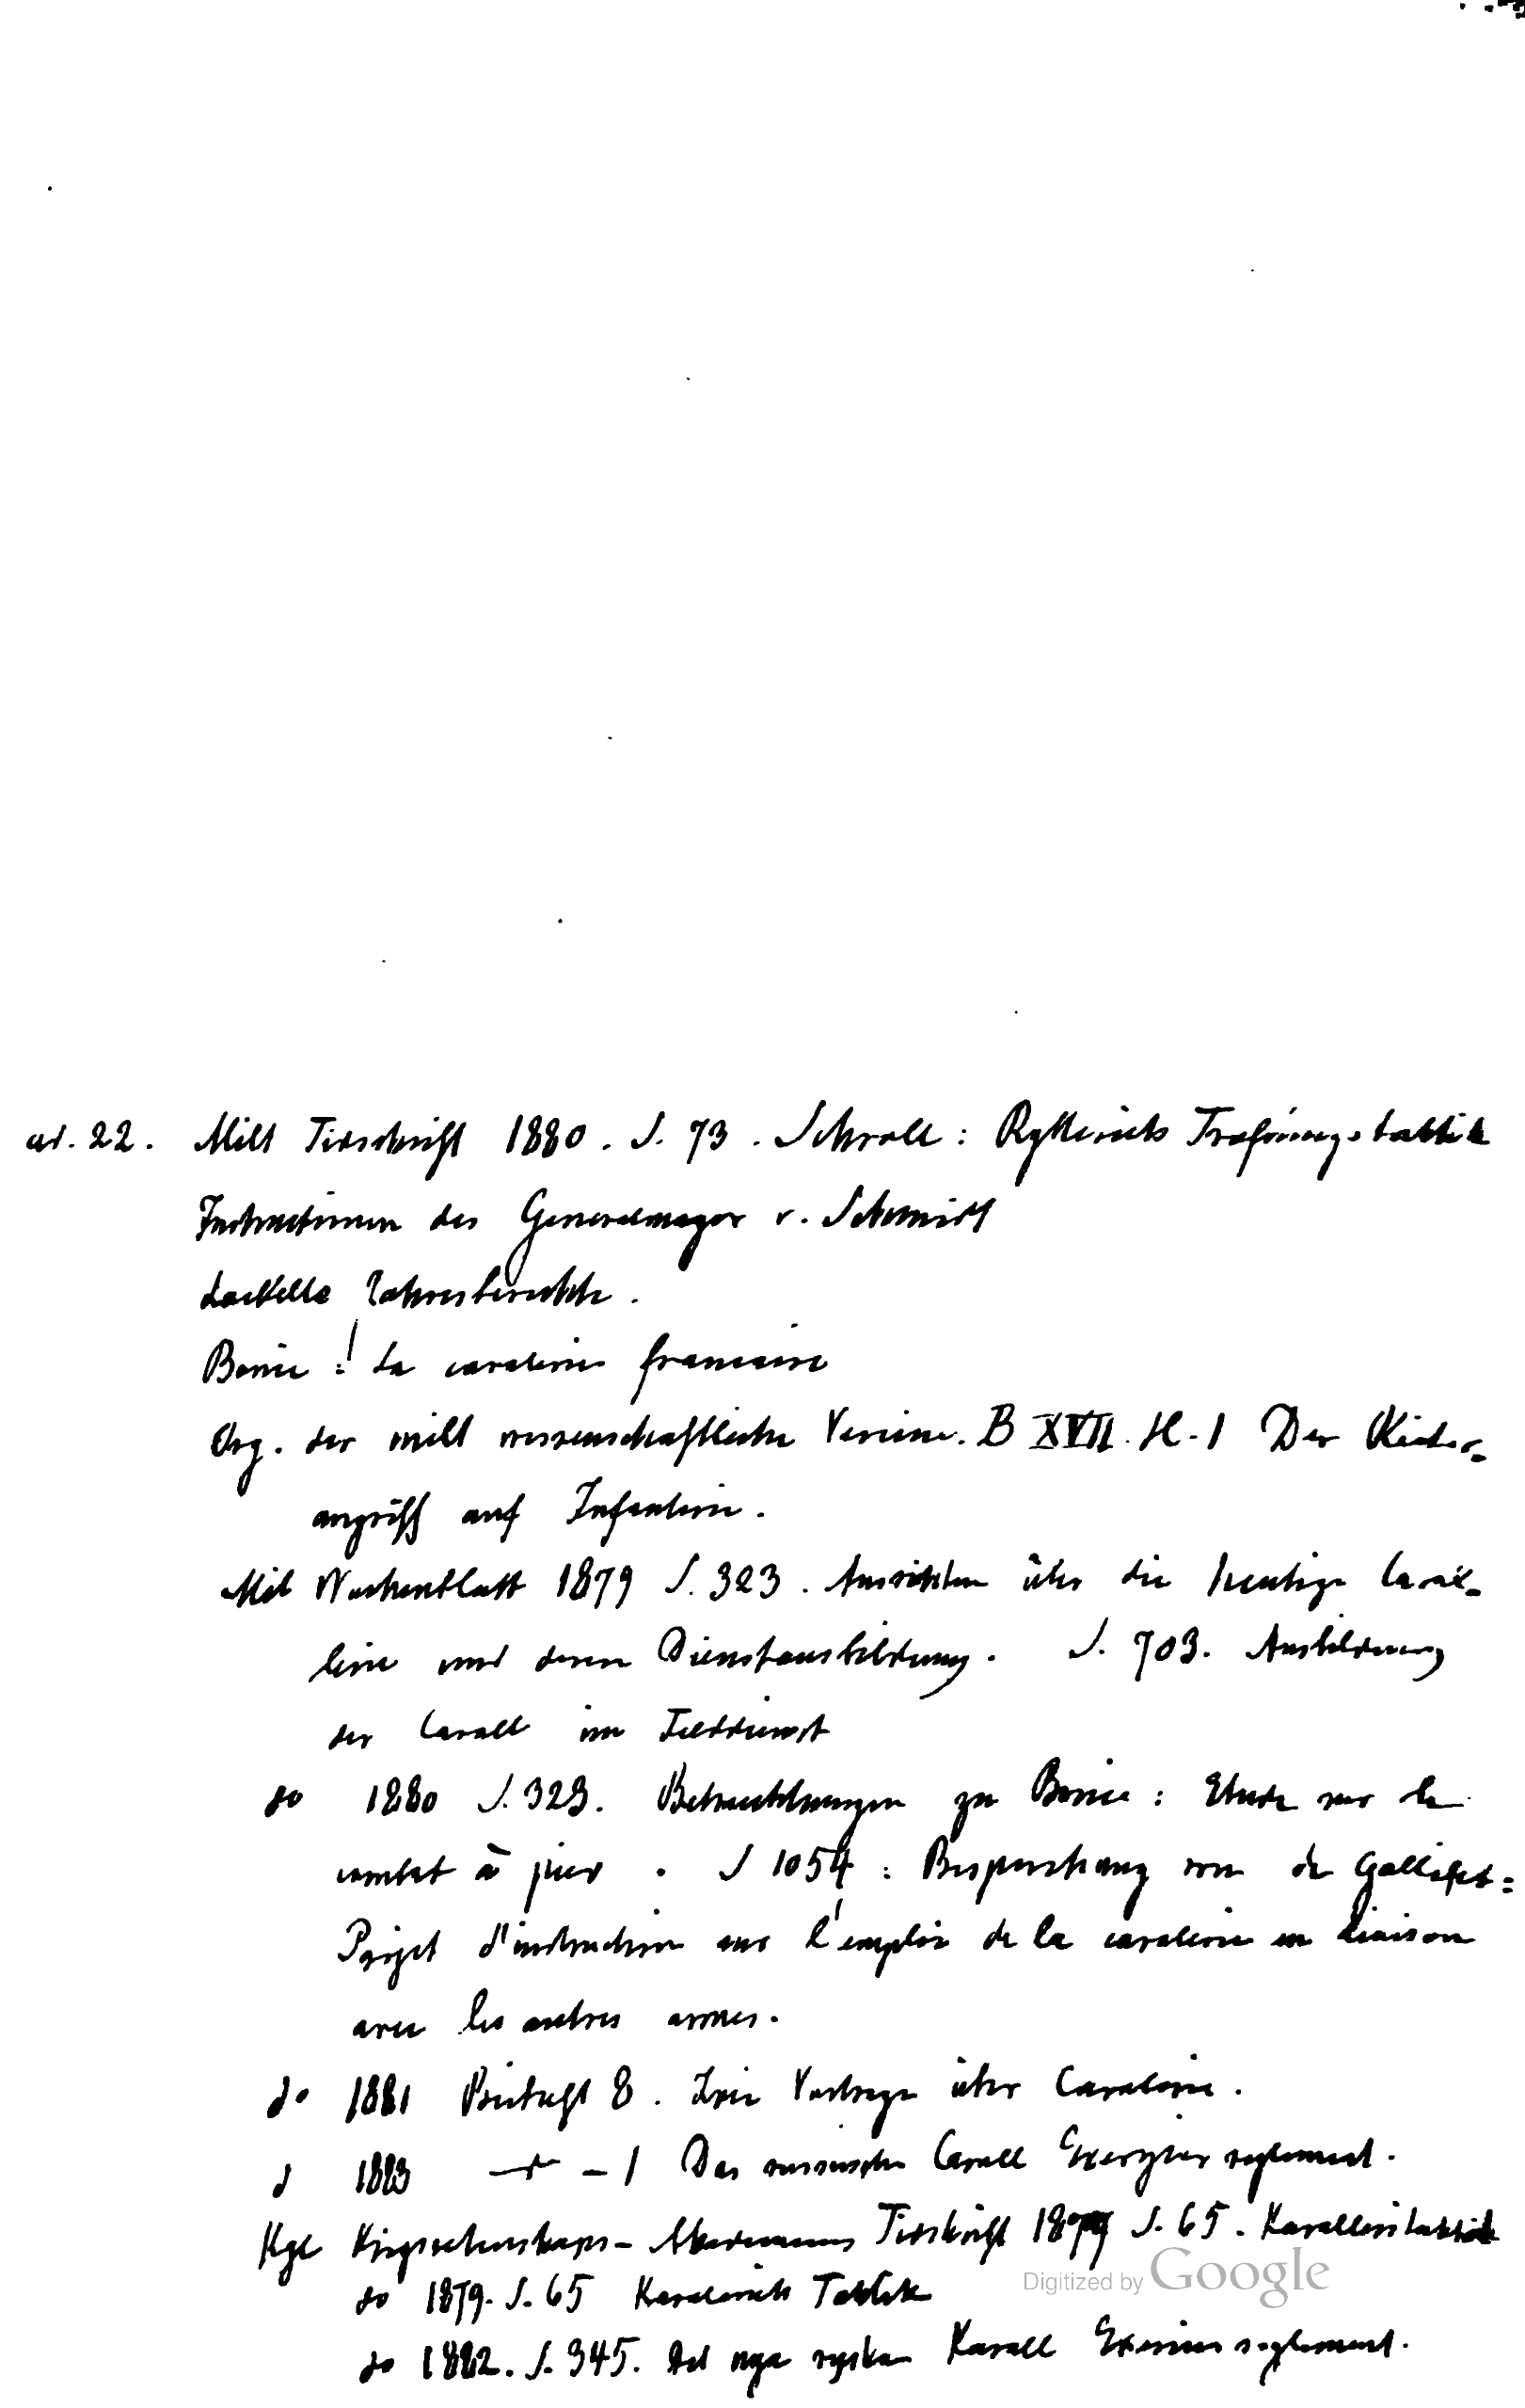 ad. 22. Milt Tidsskrift 1880. S. 73. Schroll: Rytteriets Træfningstaktik
Instructionen des Generalmajor v. Schmidt
Loebells Jahresberichte.
Bonie: La cavalerie francaise
Org. der milt wissenschaftliche Vereine. B XVII. H. 1 Der Reiter-
angriff auf Infanterie.
Mil Wochenblatt 1879 S. 323. Ansichten über die heutige Caval-
lerie und deren Dienstausbildung. S. 703. Ausbildung
der Cavall im Felddienst
do 1880 S. 323. Betrachtungen zu Bonie: Etude sur le
combat à pied. S 1054: Besprechung von de Gallifet:
Projet d'instruction sur l'emploi de la cavalerie en liaison
avec les autres armes.
do 1881 Beiheft 8. Drei Vortrage über Cavalerie.
d 1883 — — 1 Das russische Cavall Exerzier reglement.
Kgl Krigsvetenskaps-Akademiens Tidskrift S. 65. Kavalleritaktik
do 1879. S. 65 Kavaleriets Taktik
do 1882. S. 345. Det nya ryska Kavall Exercis reglement.
Digitized by Google